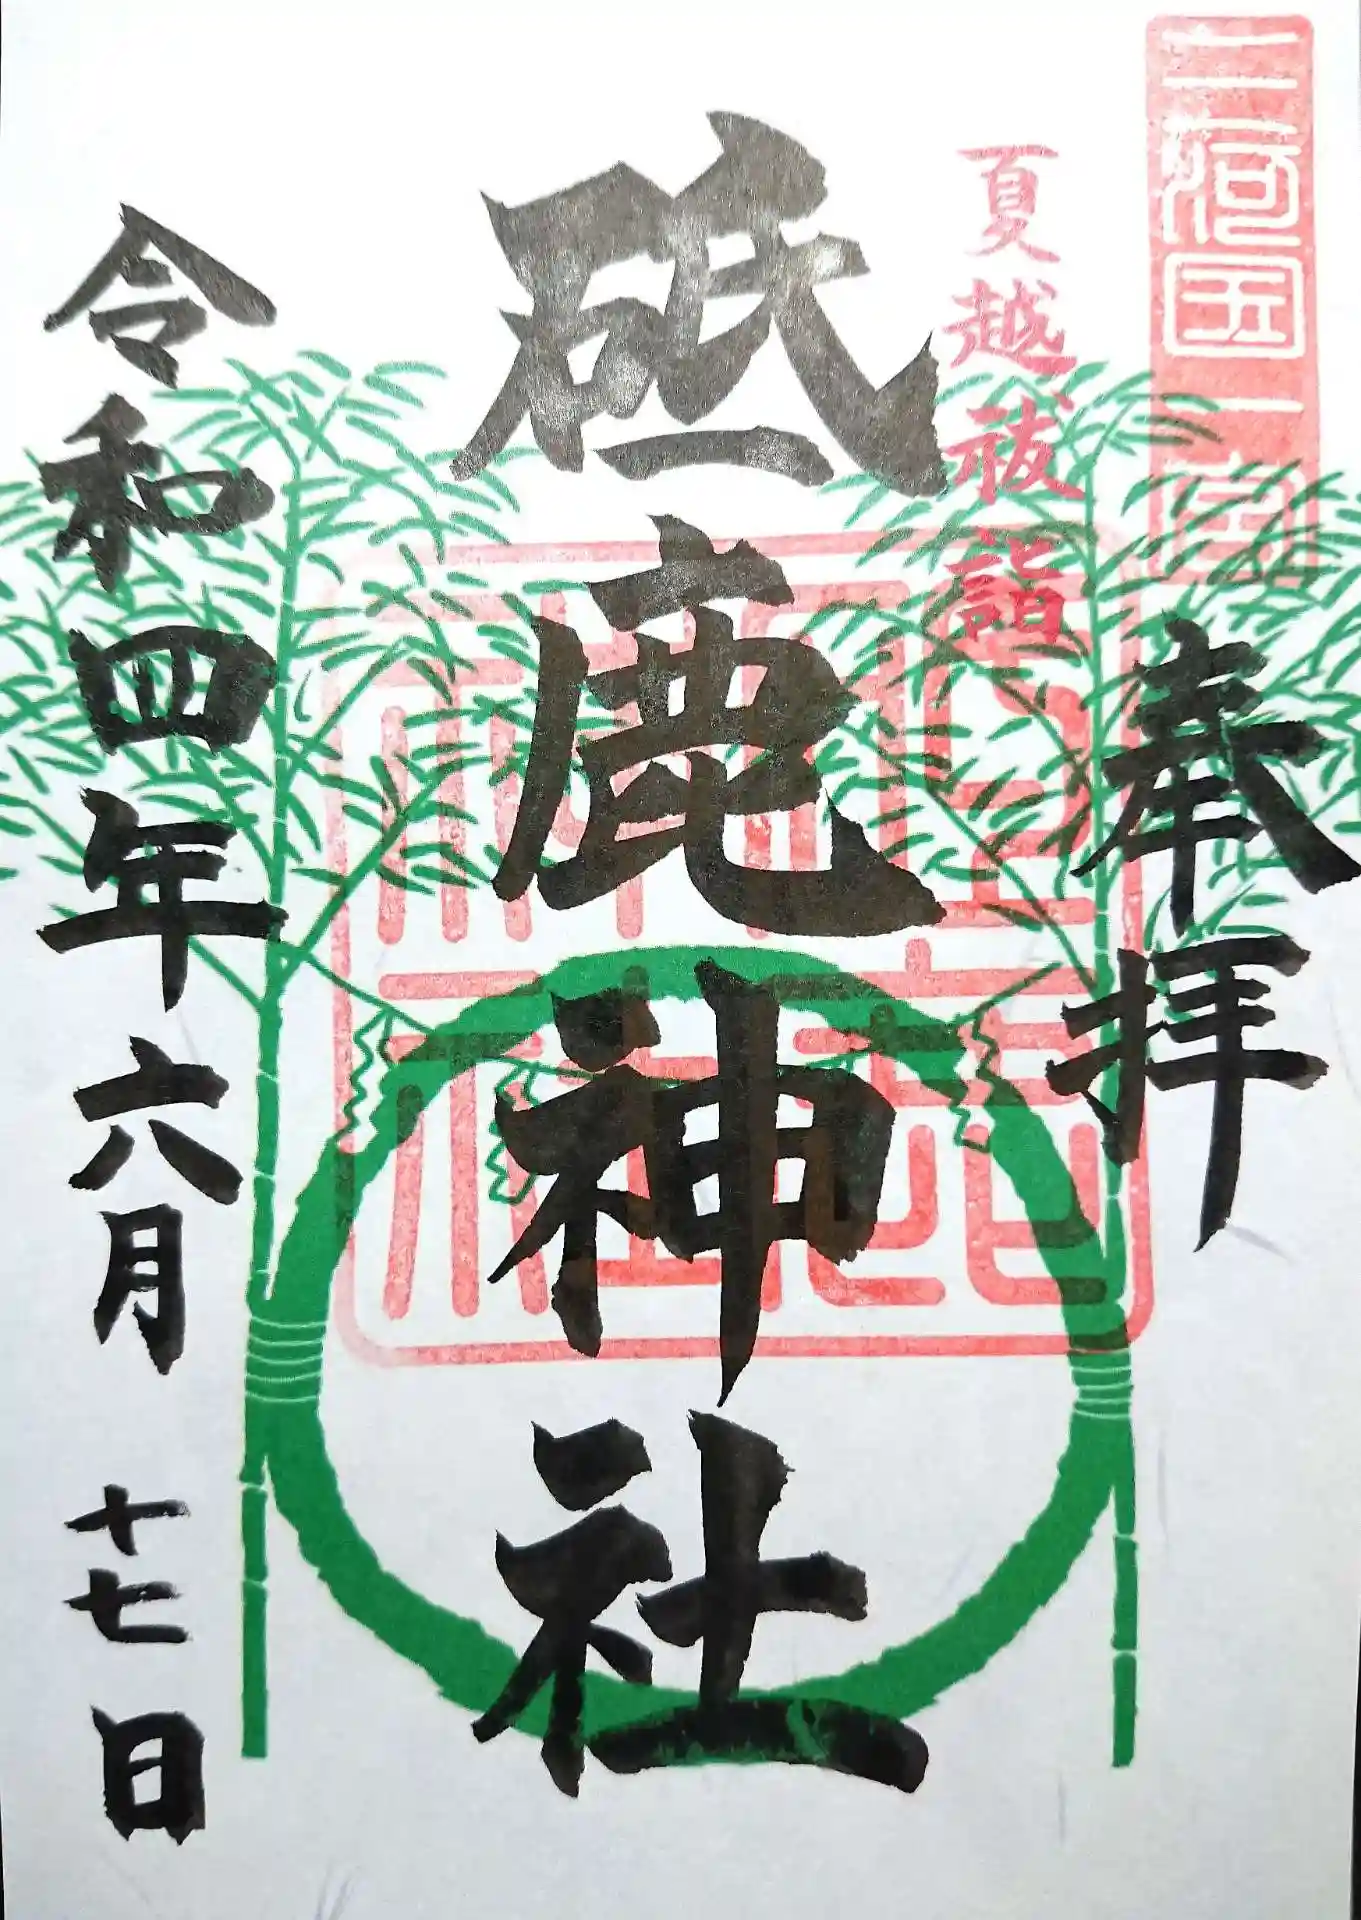 三河国一宮
奉拝
夏越祓詣
砥鹿神社
令和四年六月十七日